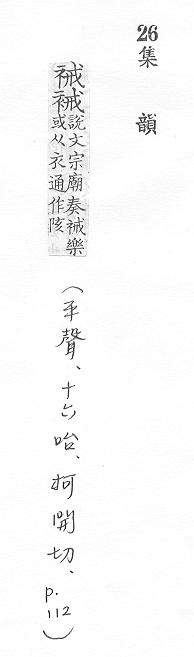 26集韻
祴裓說文宗廟奏祴樂
或从衣通作陔
（平聲、十六咍、柯開切、p.112）